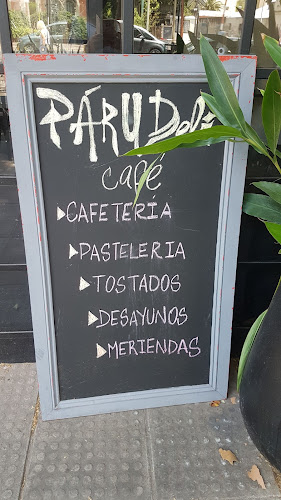 PÁRU Deli
café
CAFETERIA
PASTELERIA
TOSTADOS
DESAYUNOS
MERIENDAS